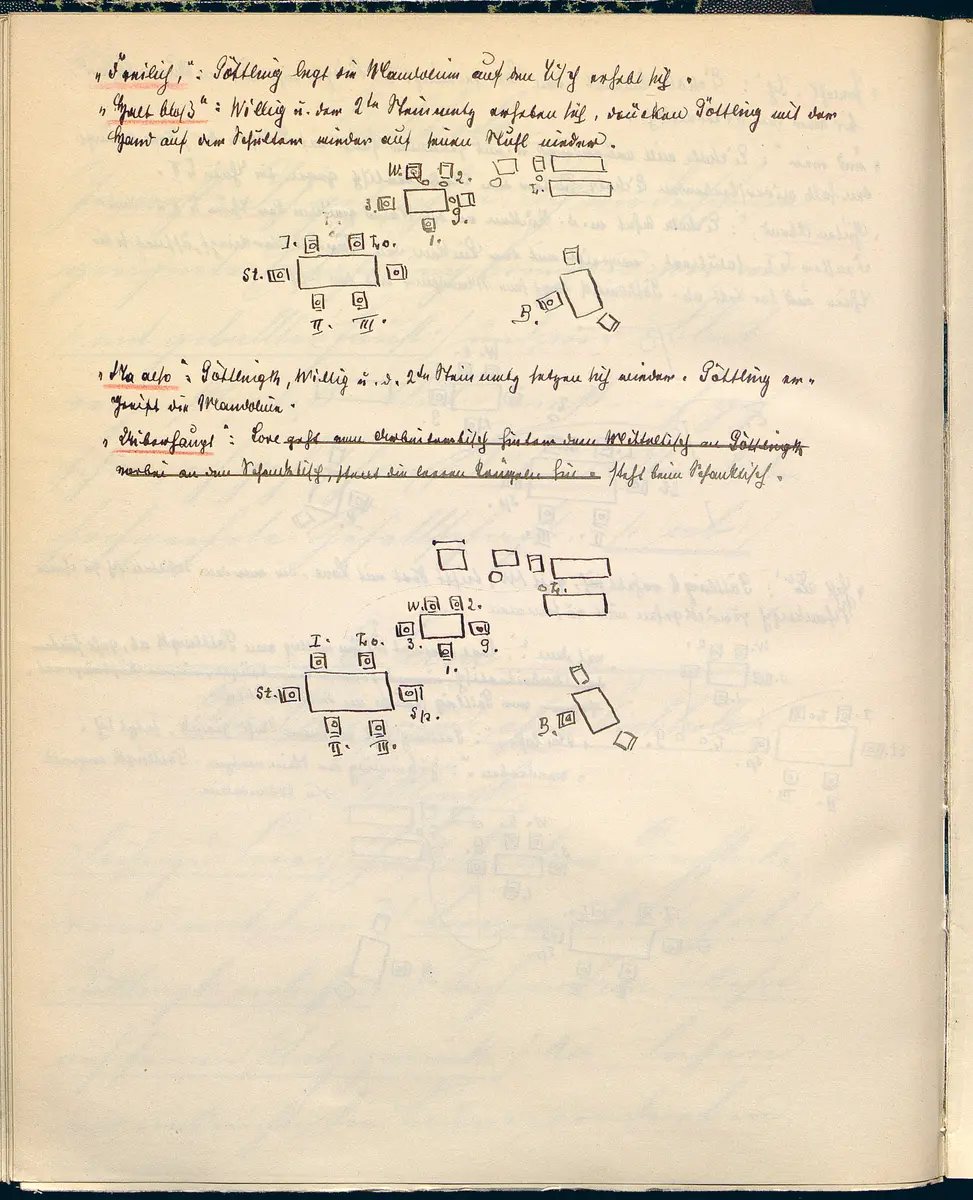 „Freilich,“: Göttling legt die Mandoline auf den Tisch erhebt sich.
„Halt bloß“: Willig u. der 2te Steinmetz erheben sich, drücken Göttling mit der
Hand auf den Schultern wieder auf seinen Stuhl nieder.
W. 2.
L.
3. g.
1.
I. Lo.
St.
B.
II. III.
„Na also“: Göttlingk, Willig u. d. 2te Steinmetz setzen sich wieder. Göttling er-
greift die Mandoline.
„Überhaupt“: Lore geht vom Arbeitertisch hinter dem Mitteltisch an Göttlingk
vorbei an den Schanktisch, stellt die leeren hin = steht beim Schanktisch.
L.
W. 2.
3. g.
1.
I. Lo.
St. Sp.
B.
II. III.